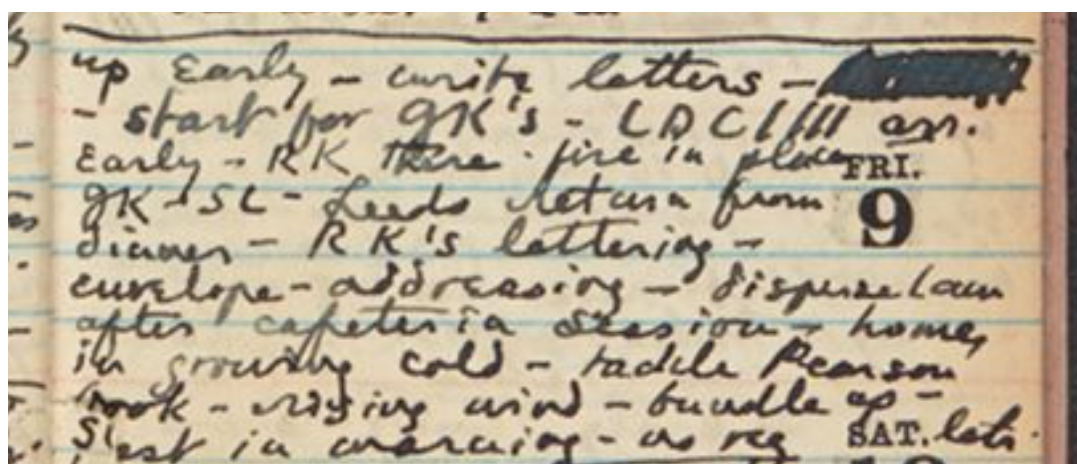 up Early - write letters -
- start for GK's - LDC //// arr.
Early - RK there - fire in place
FRI.
GK - SL - Leeds return from
9
dinner - RK's lettering -
envelope - addressing - disperse 1 am
after cafeteria session - home,
in growing cold - tackle Pearson
book - rising wind - bundle up -
SAT.
est in morning - no reg lets